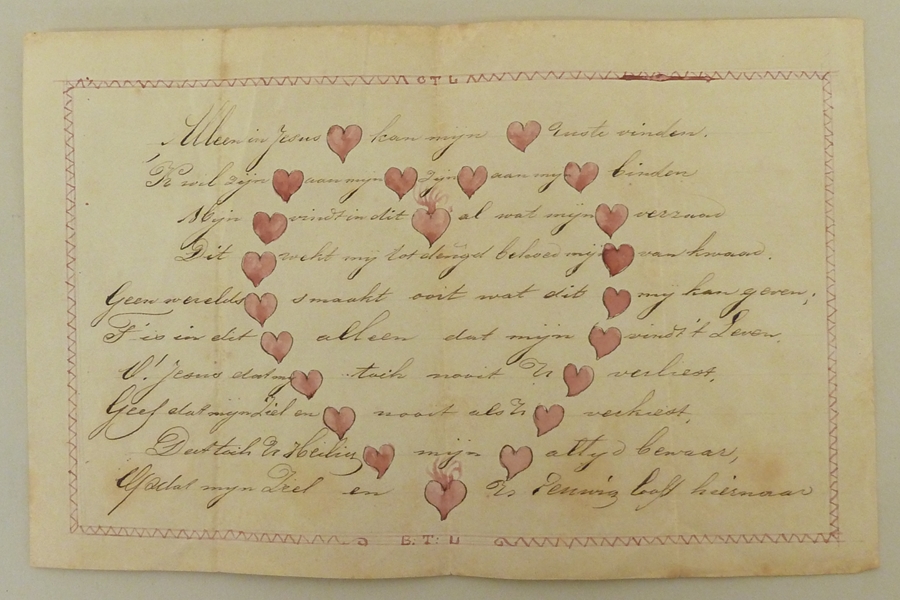 Alleen in Jesus kan mijn ruste vinden.
Ik wil zijn aan mijn zijn aan mijn binden
Mijn vindt in dit al wat mijn verraad
Dit wekt mij tot deugd behoed mijn van kwaad.
Geen werelds smaakt ooit wat dit mij kan geven,
T'is in dit alleen dat mijn vindt 't Leven.
O! Jesus dat mijn toch nooit U verliest,
Geef dat mijn Ziel en nooit als U verkiest,
Dat toch U Heilig mijn altyd bewaar,
Opdat mijn Ziel en U Eeuwig loof hiernaar
B. T: L